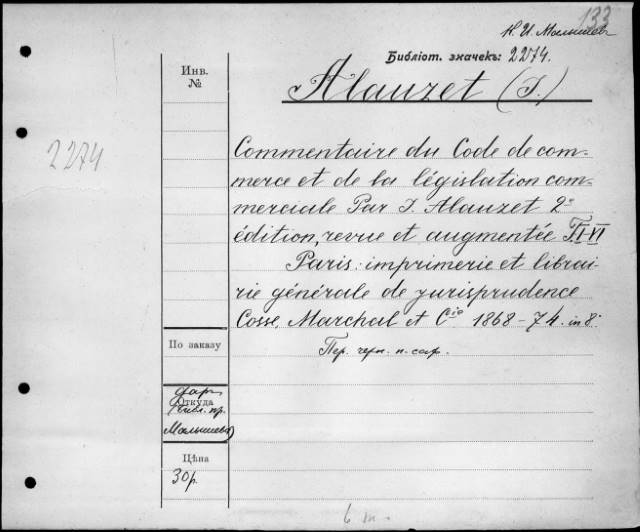 133
Н. И. Малышев
Библіот. значекъ: 2274.
Инв.
№
Alauzet (I.)
2274
Commentaire du Code de com-
merce et de la législation com-
merciale Par I. Alauzet 2e
édition, revue et augmentée T. I-VI
Paris: imprimerie et librai
rie générale de jurisprudence
Cosse, Marchal et Cie 1868-74. in 8°
По заказу
Пер. черн. п. саф.
Откуда
дар
пр.
Малышева
Цѣна
30 р.
6 т.